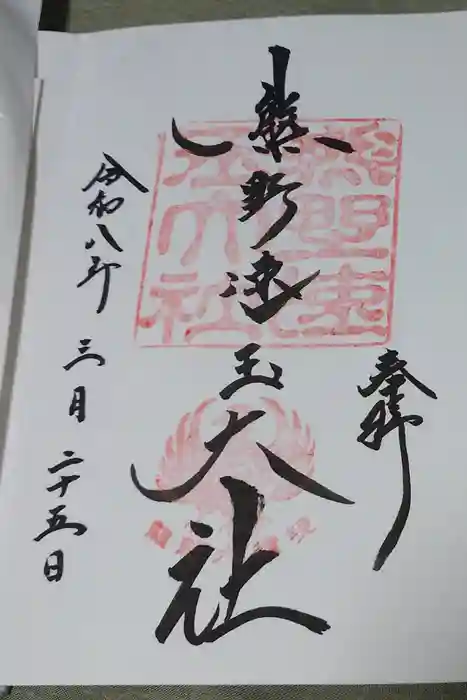 奉拝
熊野速玉大社
熊野速
玉大社
令和八年
三月
二十五日